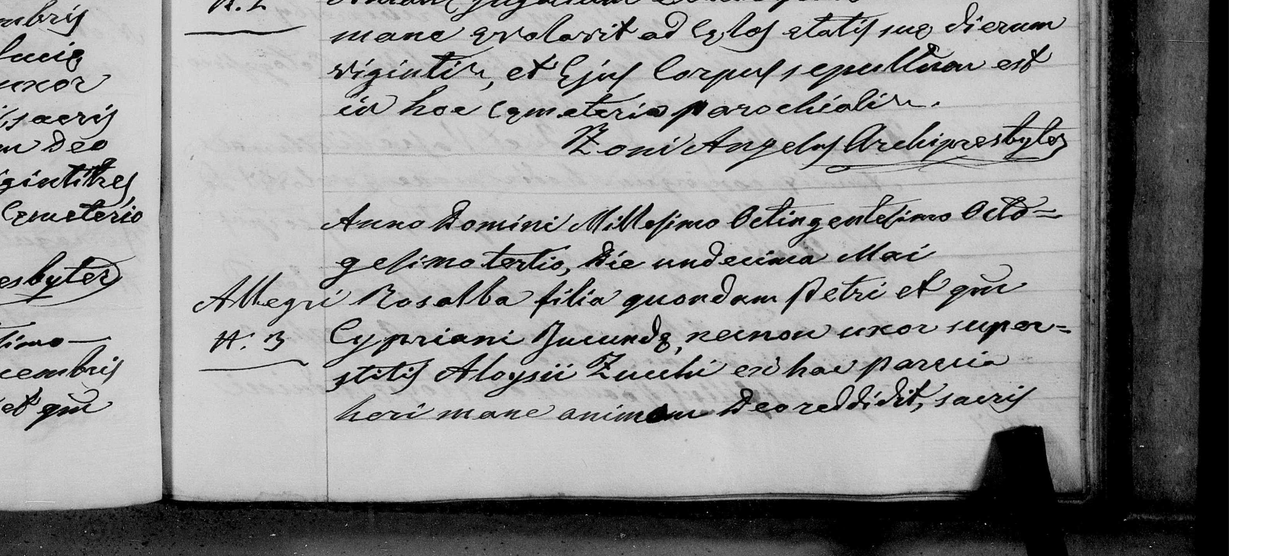 embris
uxor
sacris
m Deo
gintitres
Cęmeterio
esbyter
simo
cembris
et qm̄
N. 2
mane evolavit ad Cęlos etatis suę dierum
viginti, et Ejus Corpus sepultum est
in hoc Cęmeterio parochiali.
Zoni Angelus Archipresbyter
Anno Domini Millesimo Octingentesimo Octo=
gesimo tertio, Die undecima Mai
Allegri Rosalba filia quondam Petri et qm̄
N. 3 Cypriani Jucundę, necnon uxor super=
stitis Aloysii Zucchi ex hac Parecia
heri mane animam Deo reddidit, sacris